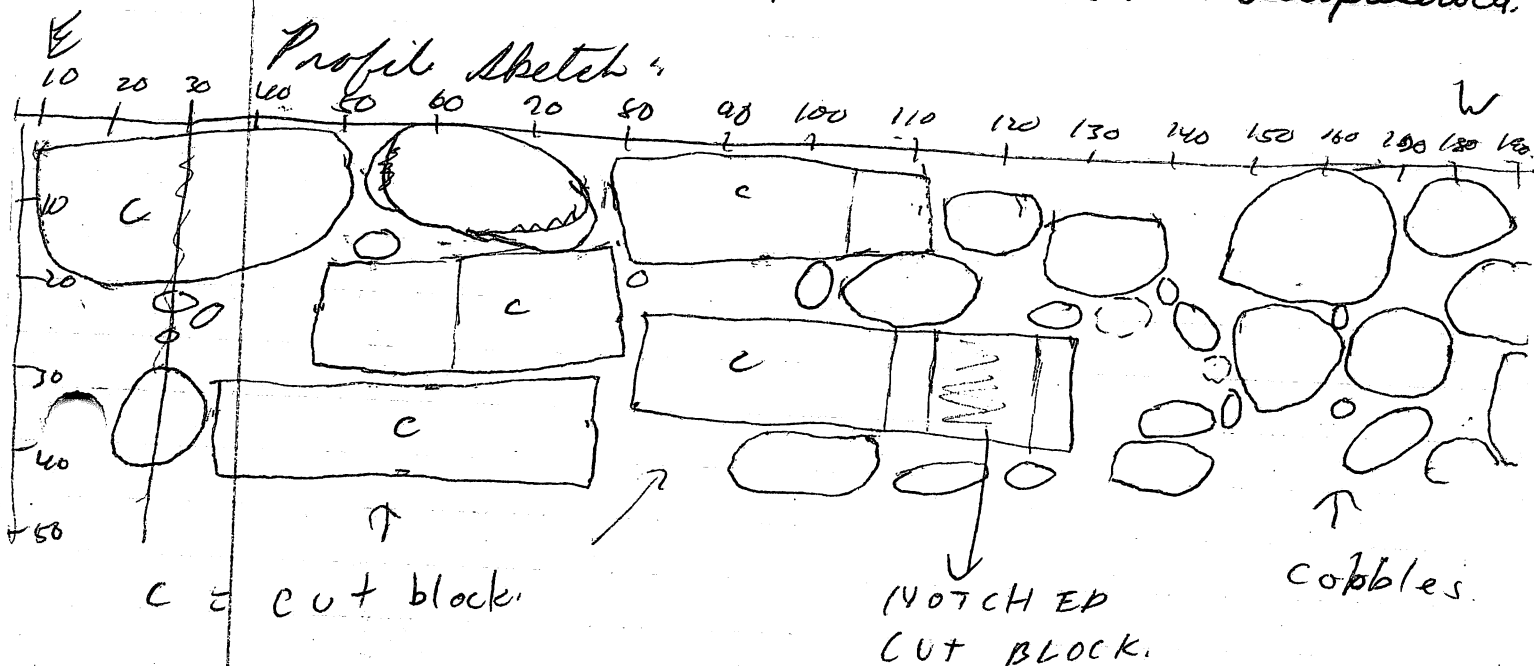 E
Profile Sketch.
W
10 20 30 40 50 60 70 80 90 100 110 120 130 140 150 160 180 190
10
20
30
40
50
C
C
C
C
C
C = cut block.
NOTCHED
CUT BLOCK.
Cobbles.